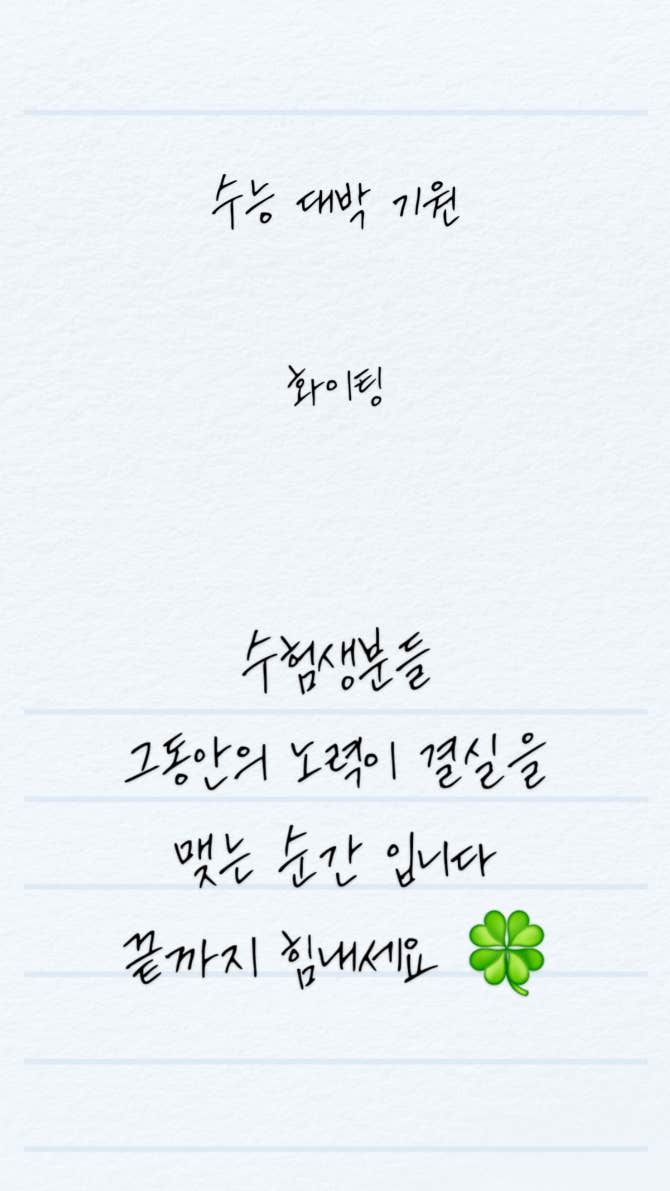 수능 대박 기원
화이팅
수험생분들
그동안의 노력이 결실을
맺는 순간 입니다
끝까지 힘내세요 🍀